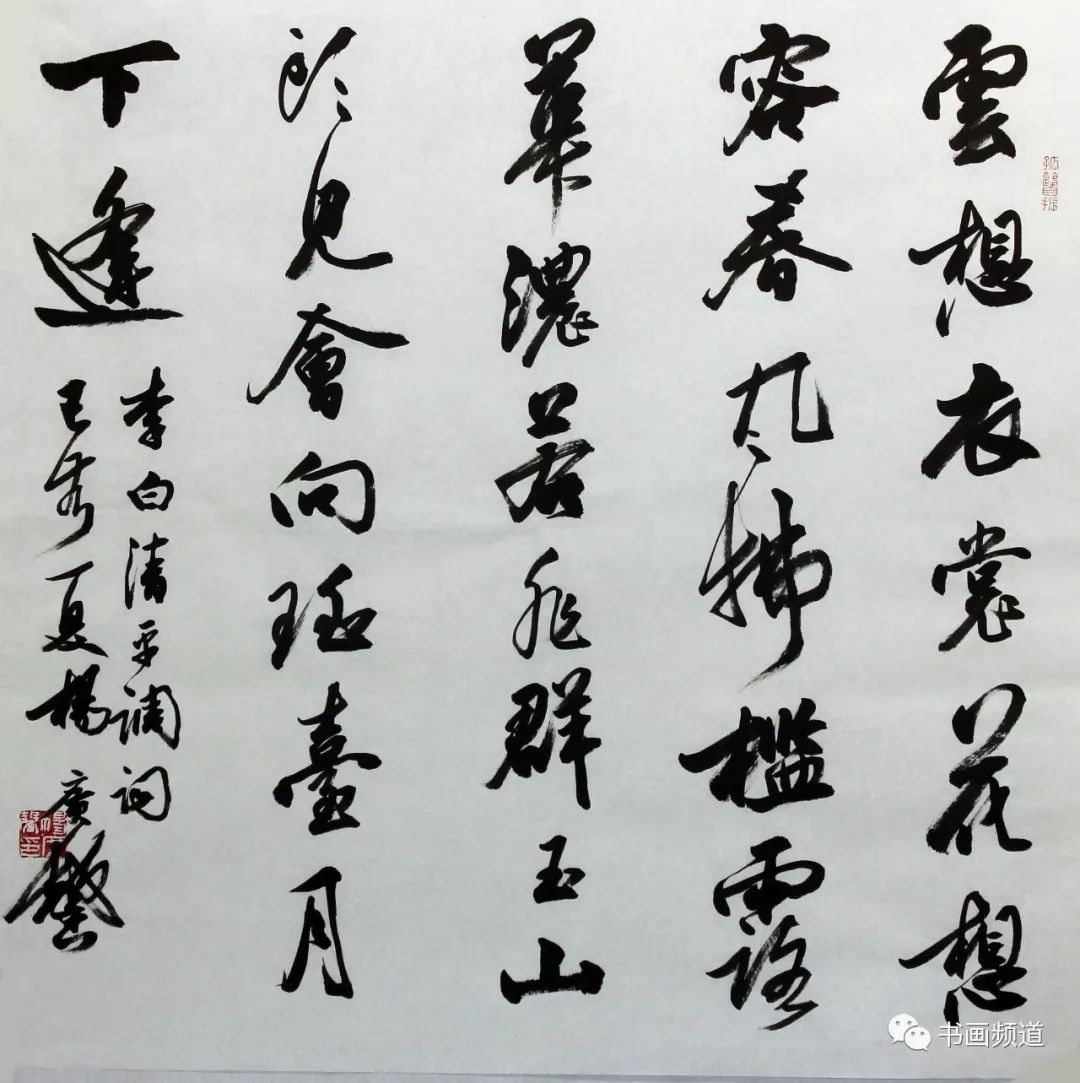 雲想衣裳花想
容春風拂檻露
華濃若非群玉山
頭見會向瑤臺月
下逢
李白清平調詞
己亥夏楊廣馨
书画频道